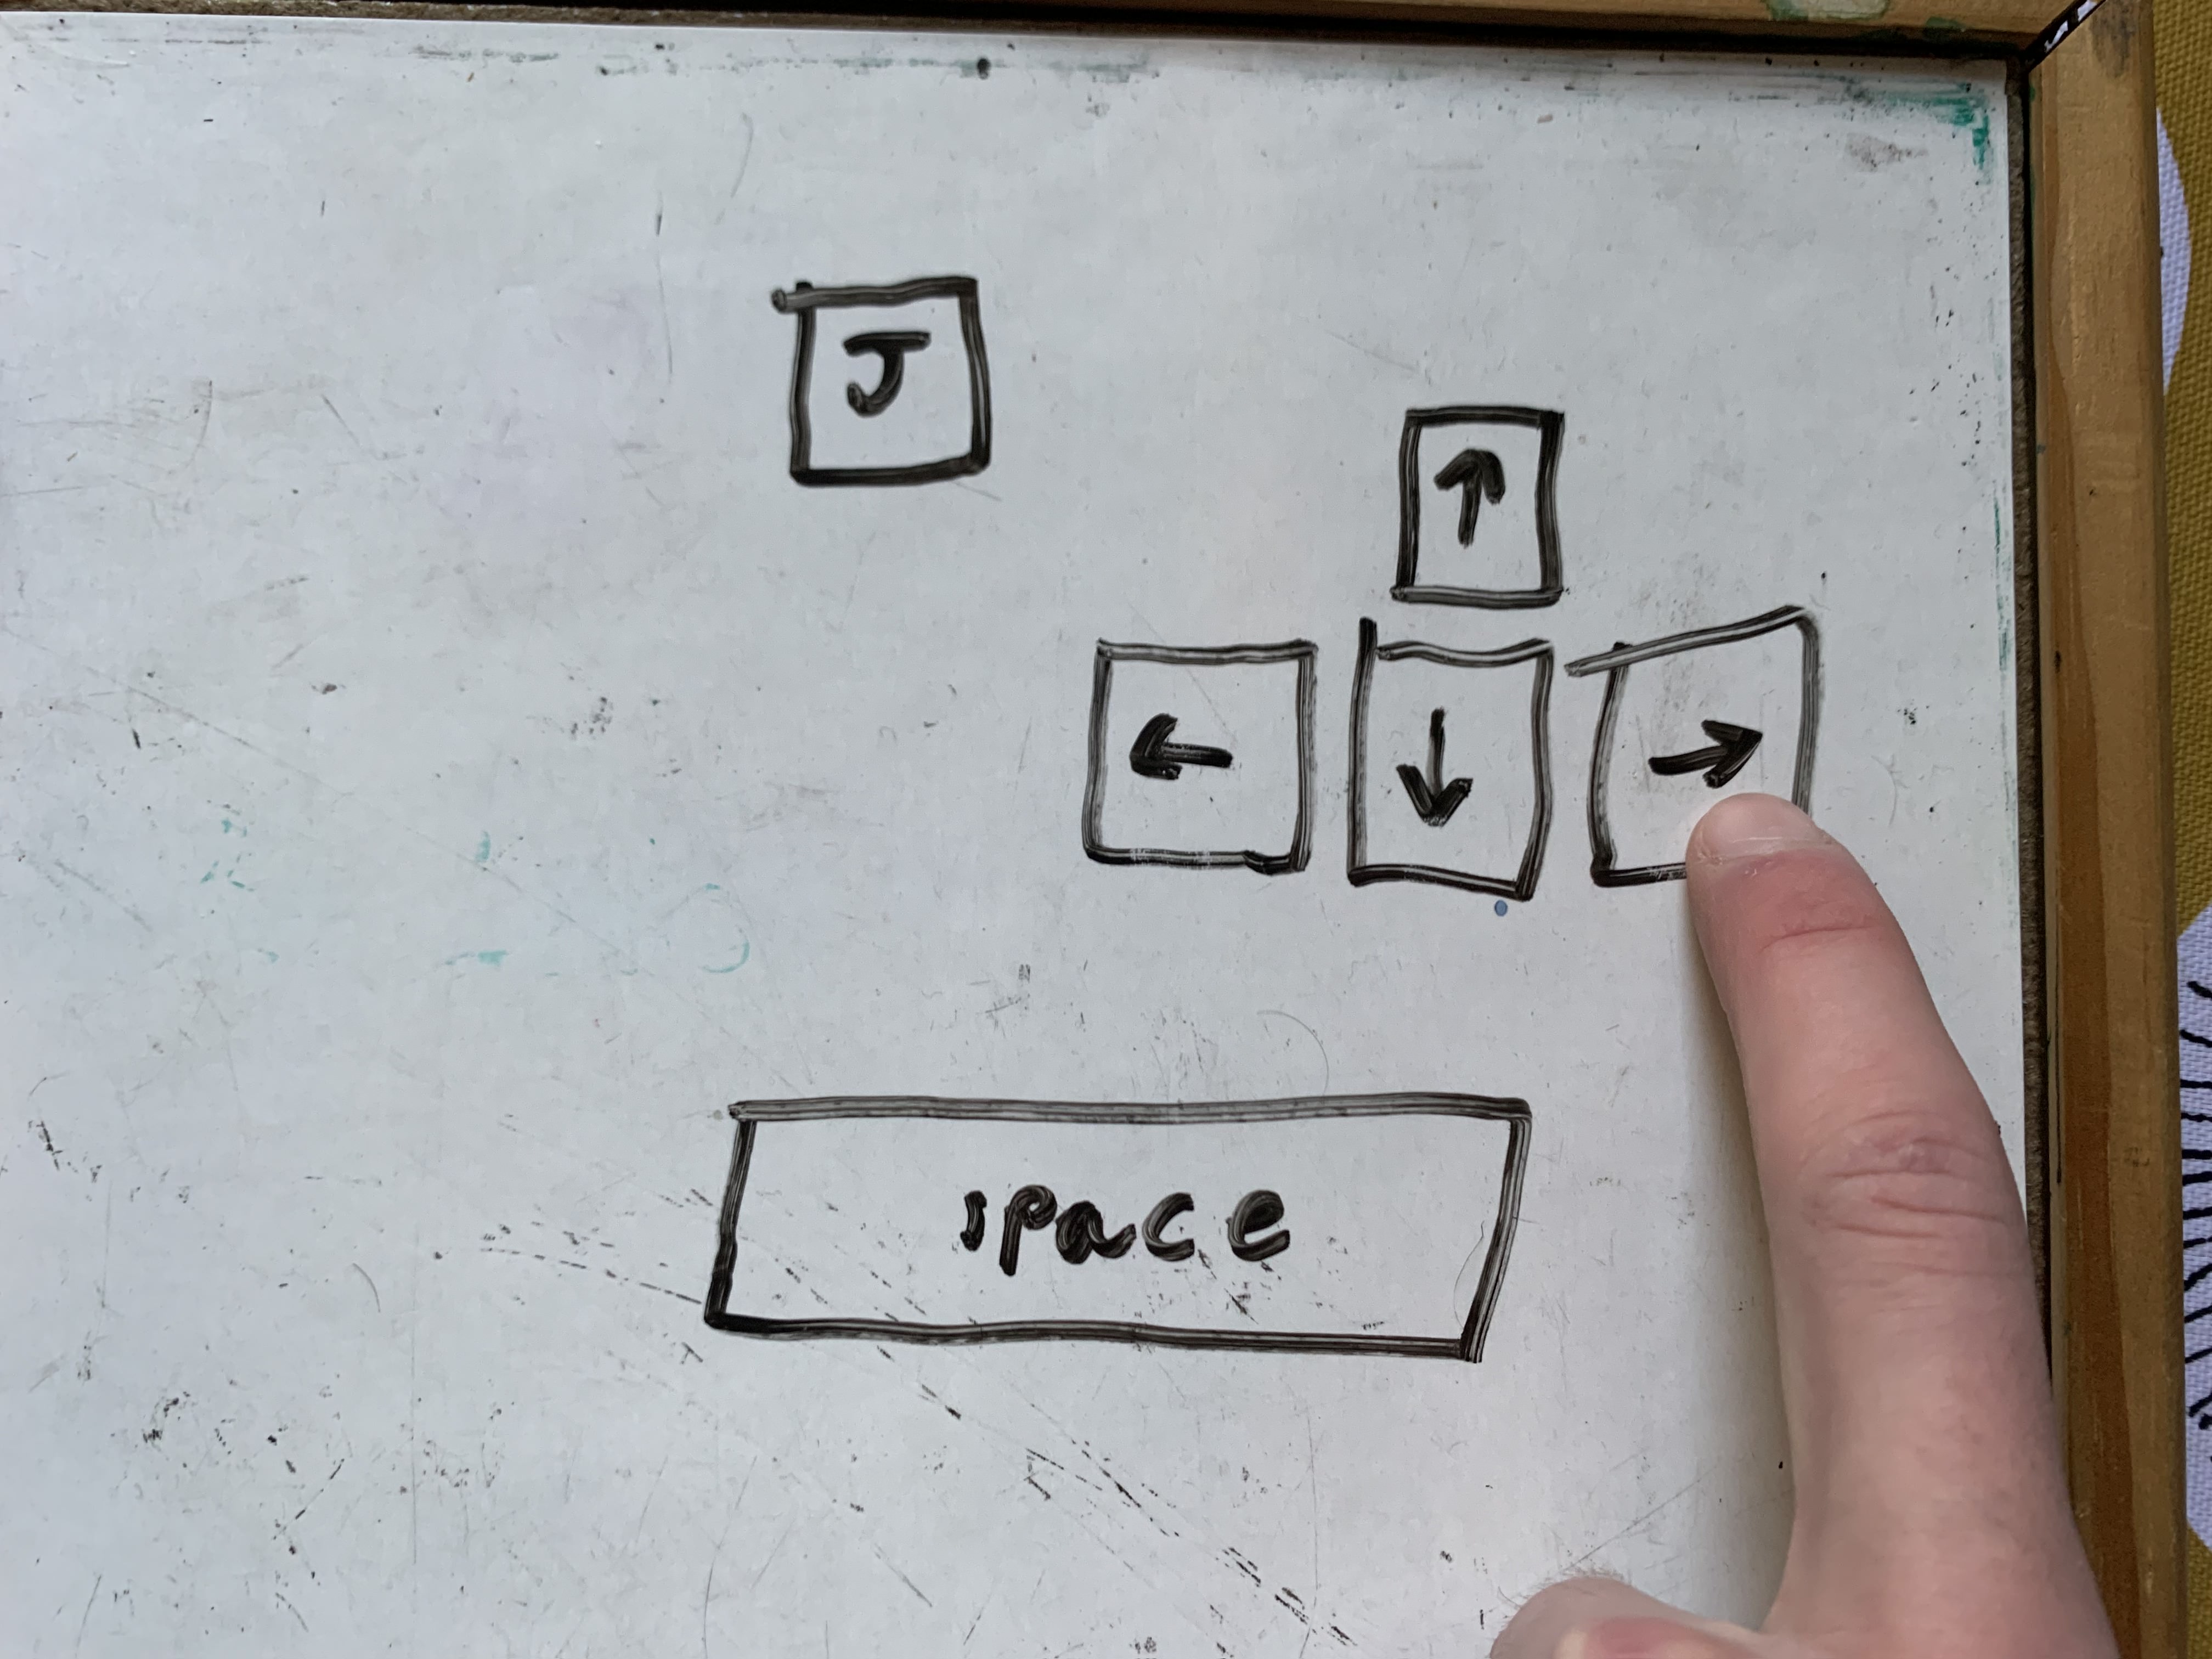 J
↑
← ↓ →
space